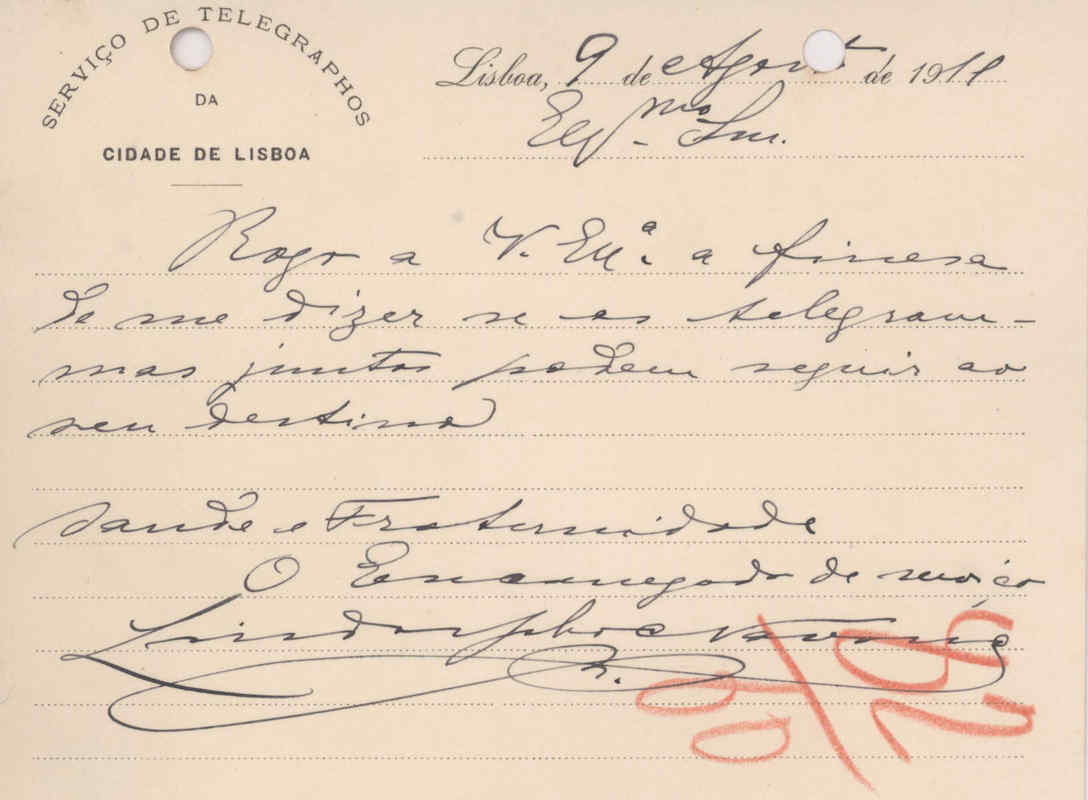 SERVIÇO DE TELEGRAPHOS
DA
CIDADE DE LISBOA
Lisboa, 9 de Agosto de 1911
Exmo Snr.
Rogo a V. Exª. a finesa
de me dizer se os telegram-
mas juntos podem seguir ao
seu destino
Saude e Fraternidade
O Encarregado de serviço
Lindorpho